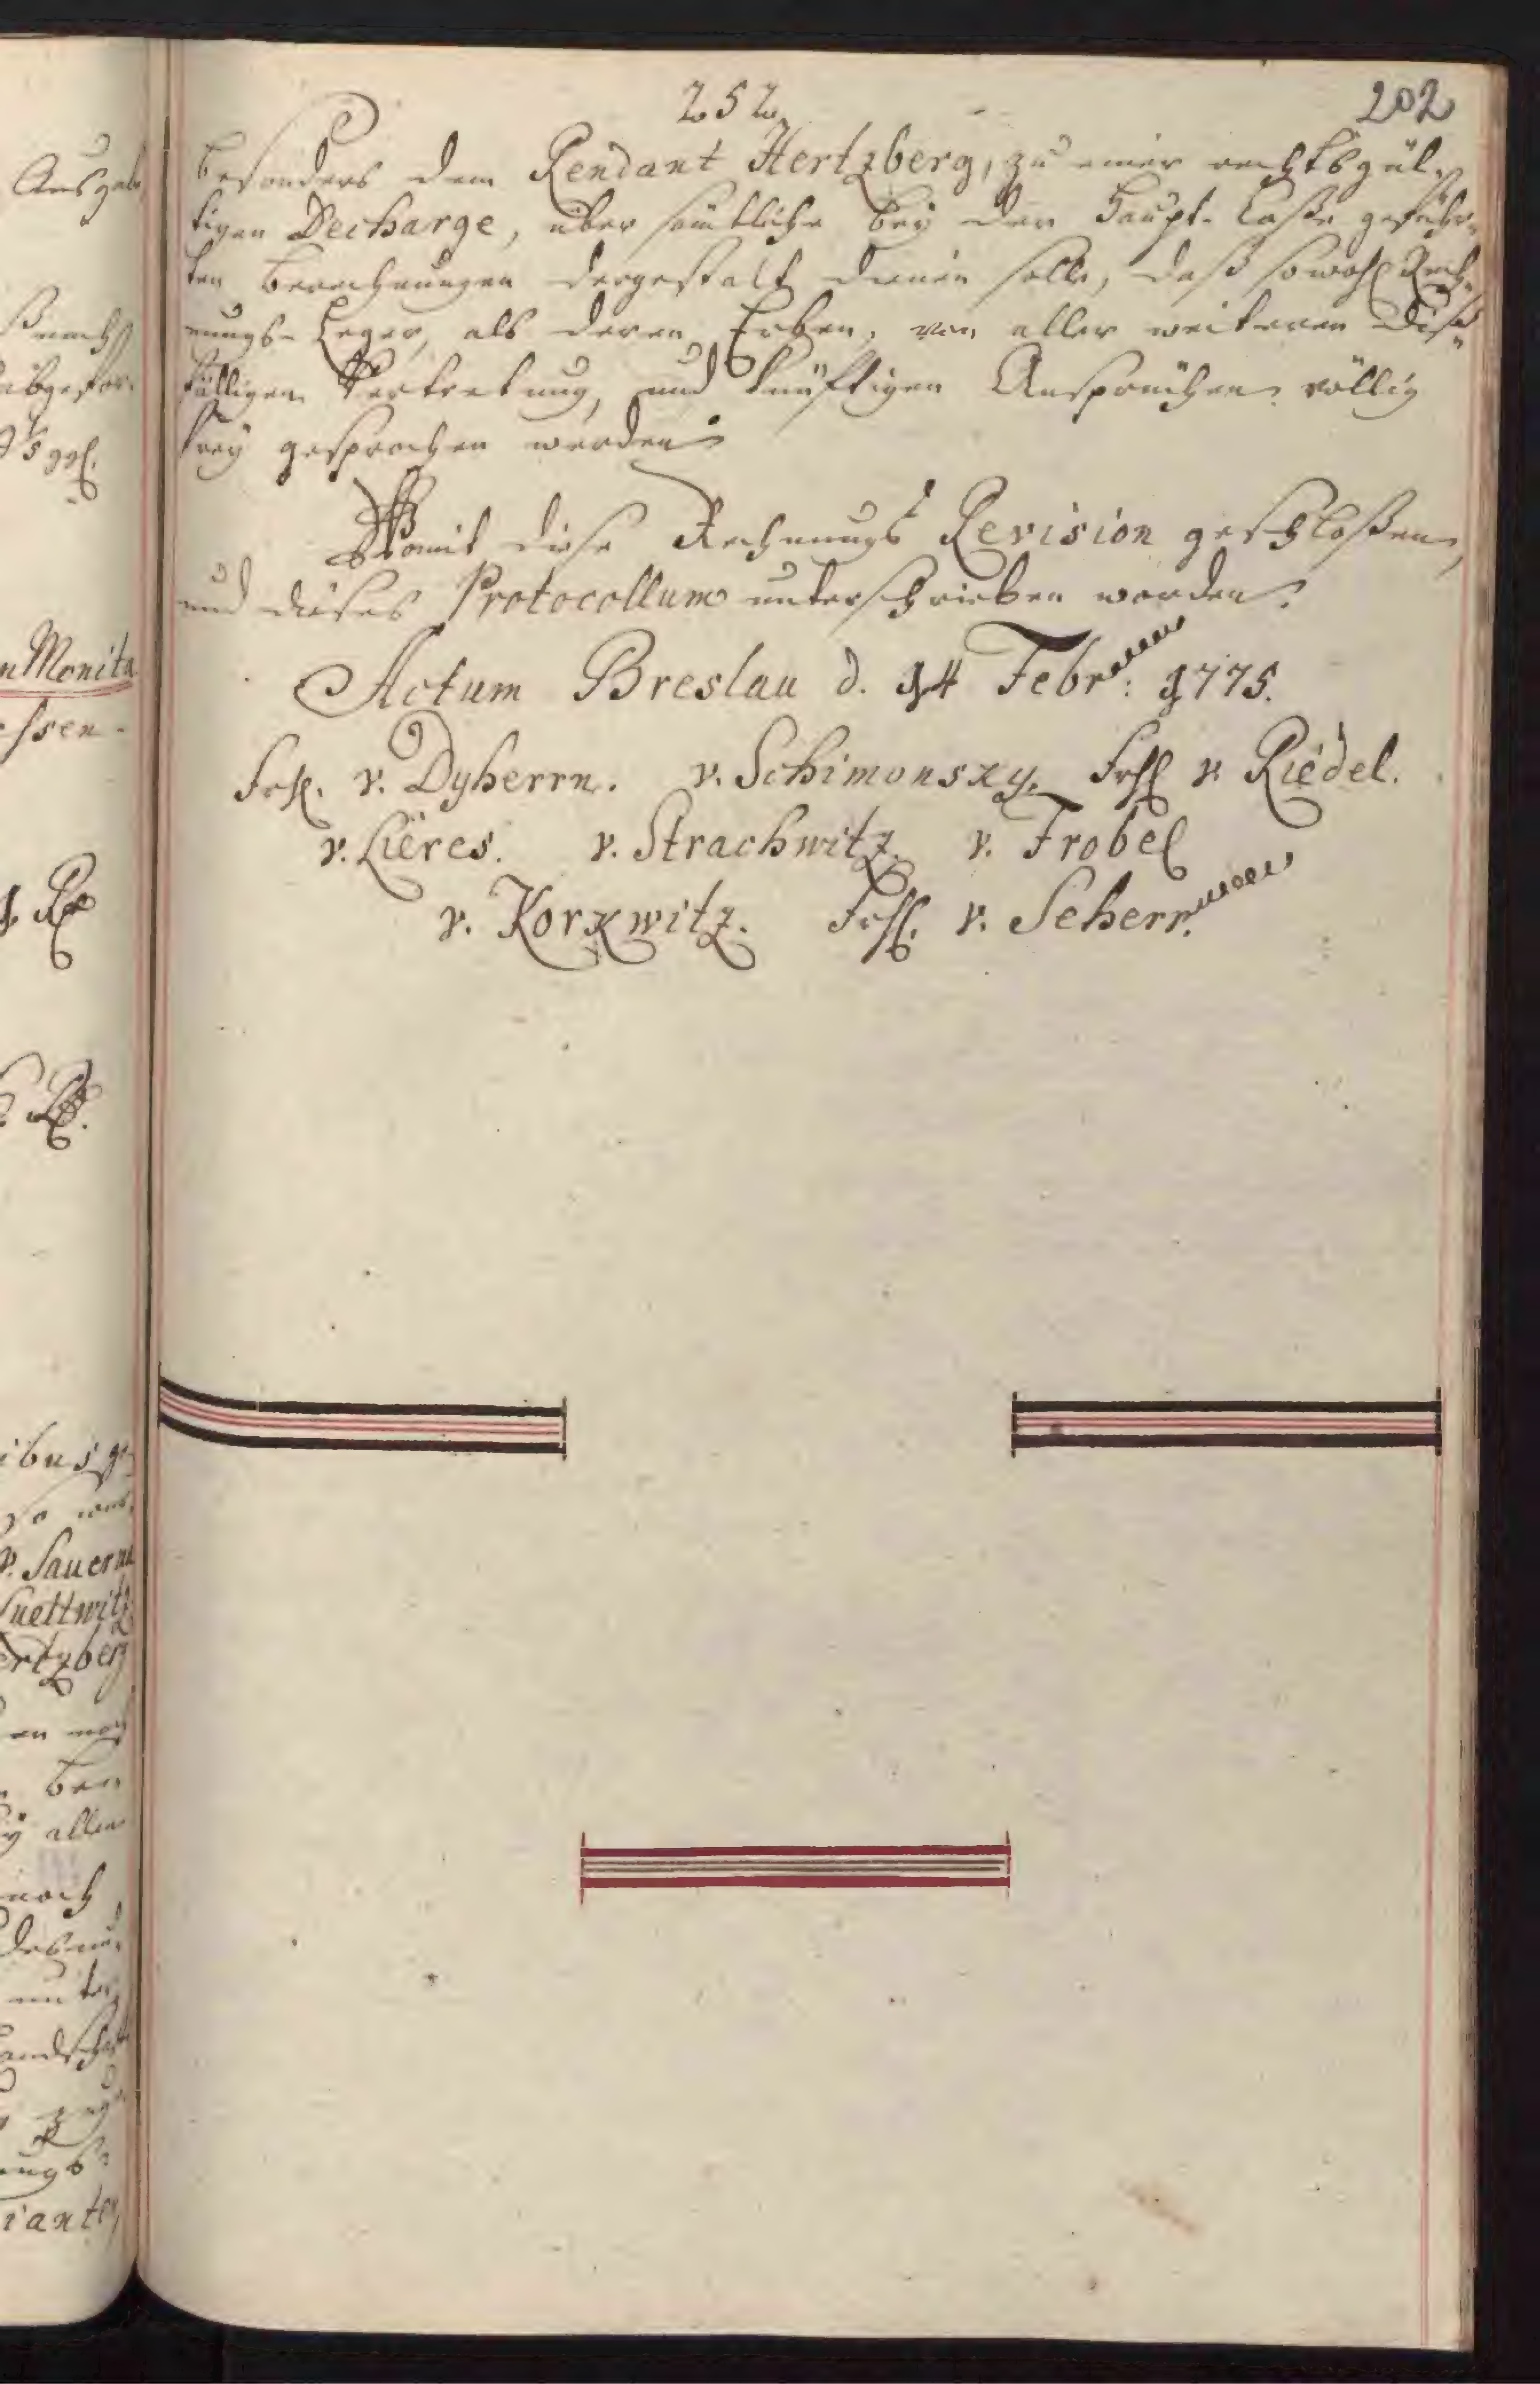 252
202
besonders dem Rendant Hertzberg, zu einer rechtsgül-
tigen Decharge, über sämtliche bey der Haupt-Caße geführ-
ten Berechnungen dergestalt dienen solle, daß sowohl Rech-
nungs-Leger, als deren Erben, von aller weiteren dies-
fälligen Vertretung, und künftigen Ansprüchen völlig
frey gesprochen werden.
Womit diese Rechnungs Revision geschloßen,
und dieses Protocollum unterschrieben worden.
Actum Breslau d. 14 Febr: 1775.
Frh. v. Dyherrn. v. Schimonsky. Frh. v. Riedel.
v. Lieres. v. Strachwitz. v. Frobel
v. Korkwitz. Frh. v. Seherr.
Ausgab
n Monita
v. Sauerma
ertzberg
allen
noch